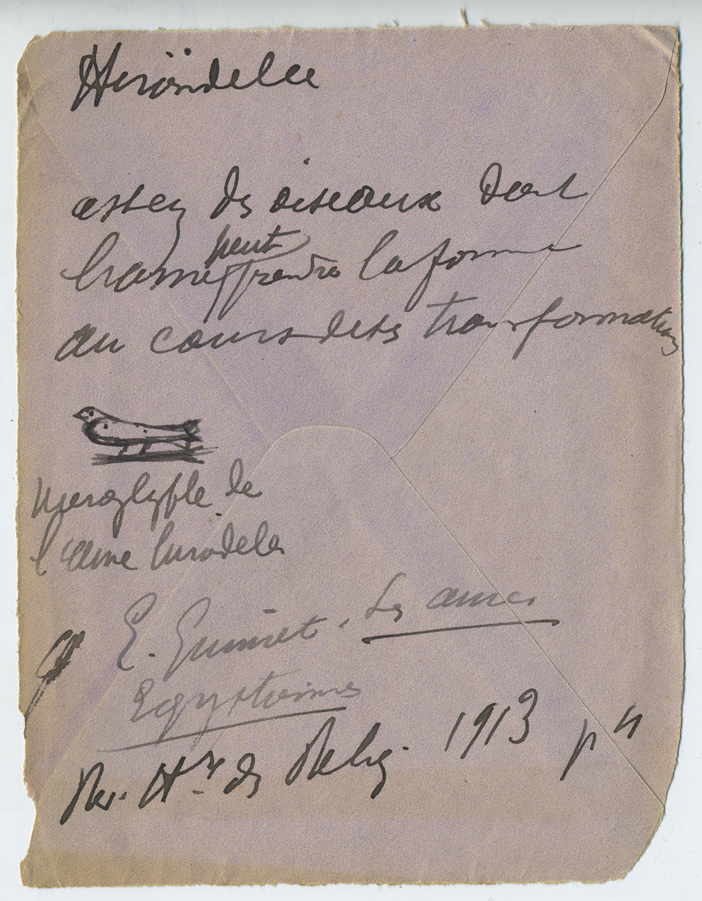 Hirondelle
assez des oiseaux dont
l'ame peut prendre la forme
au cours des transformations
hieroglyphe de
l'ame hirondelle
E. Guimet. Les ames
Egyptiennes
Rev. Hre des Relig. 1913 p